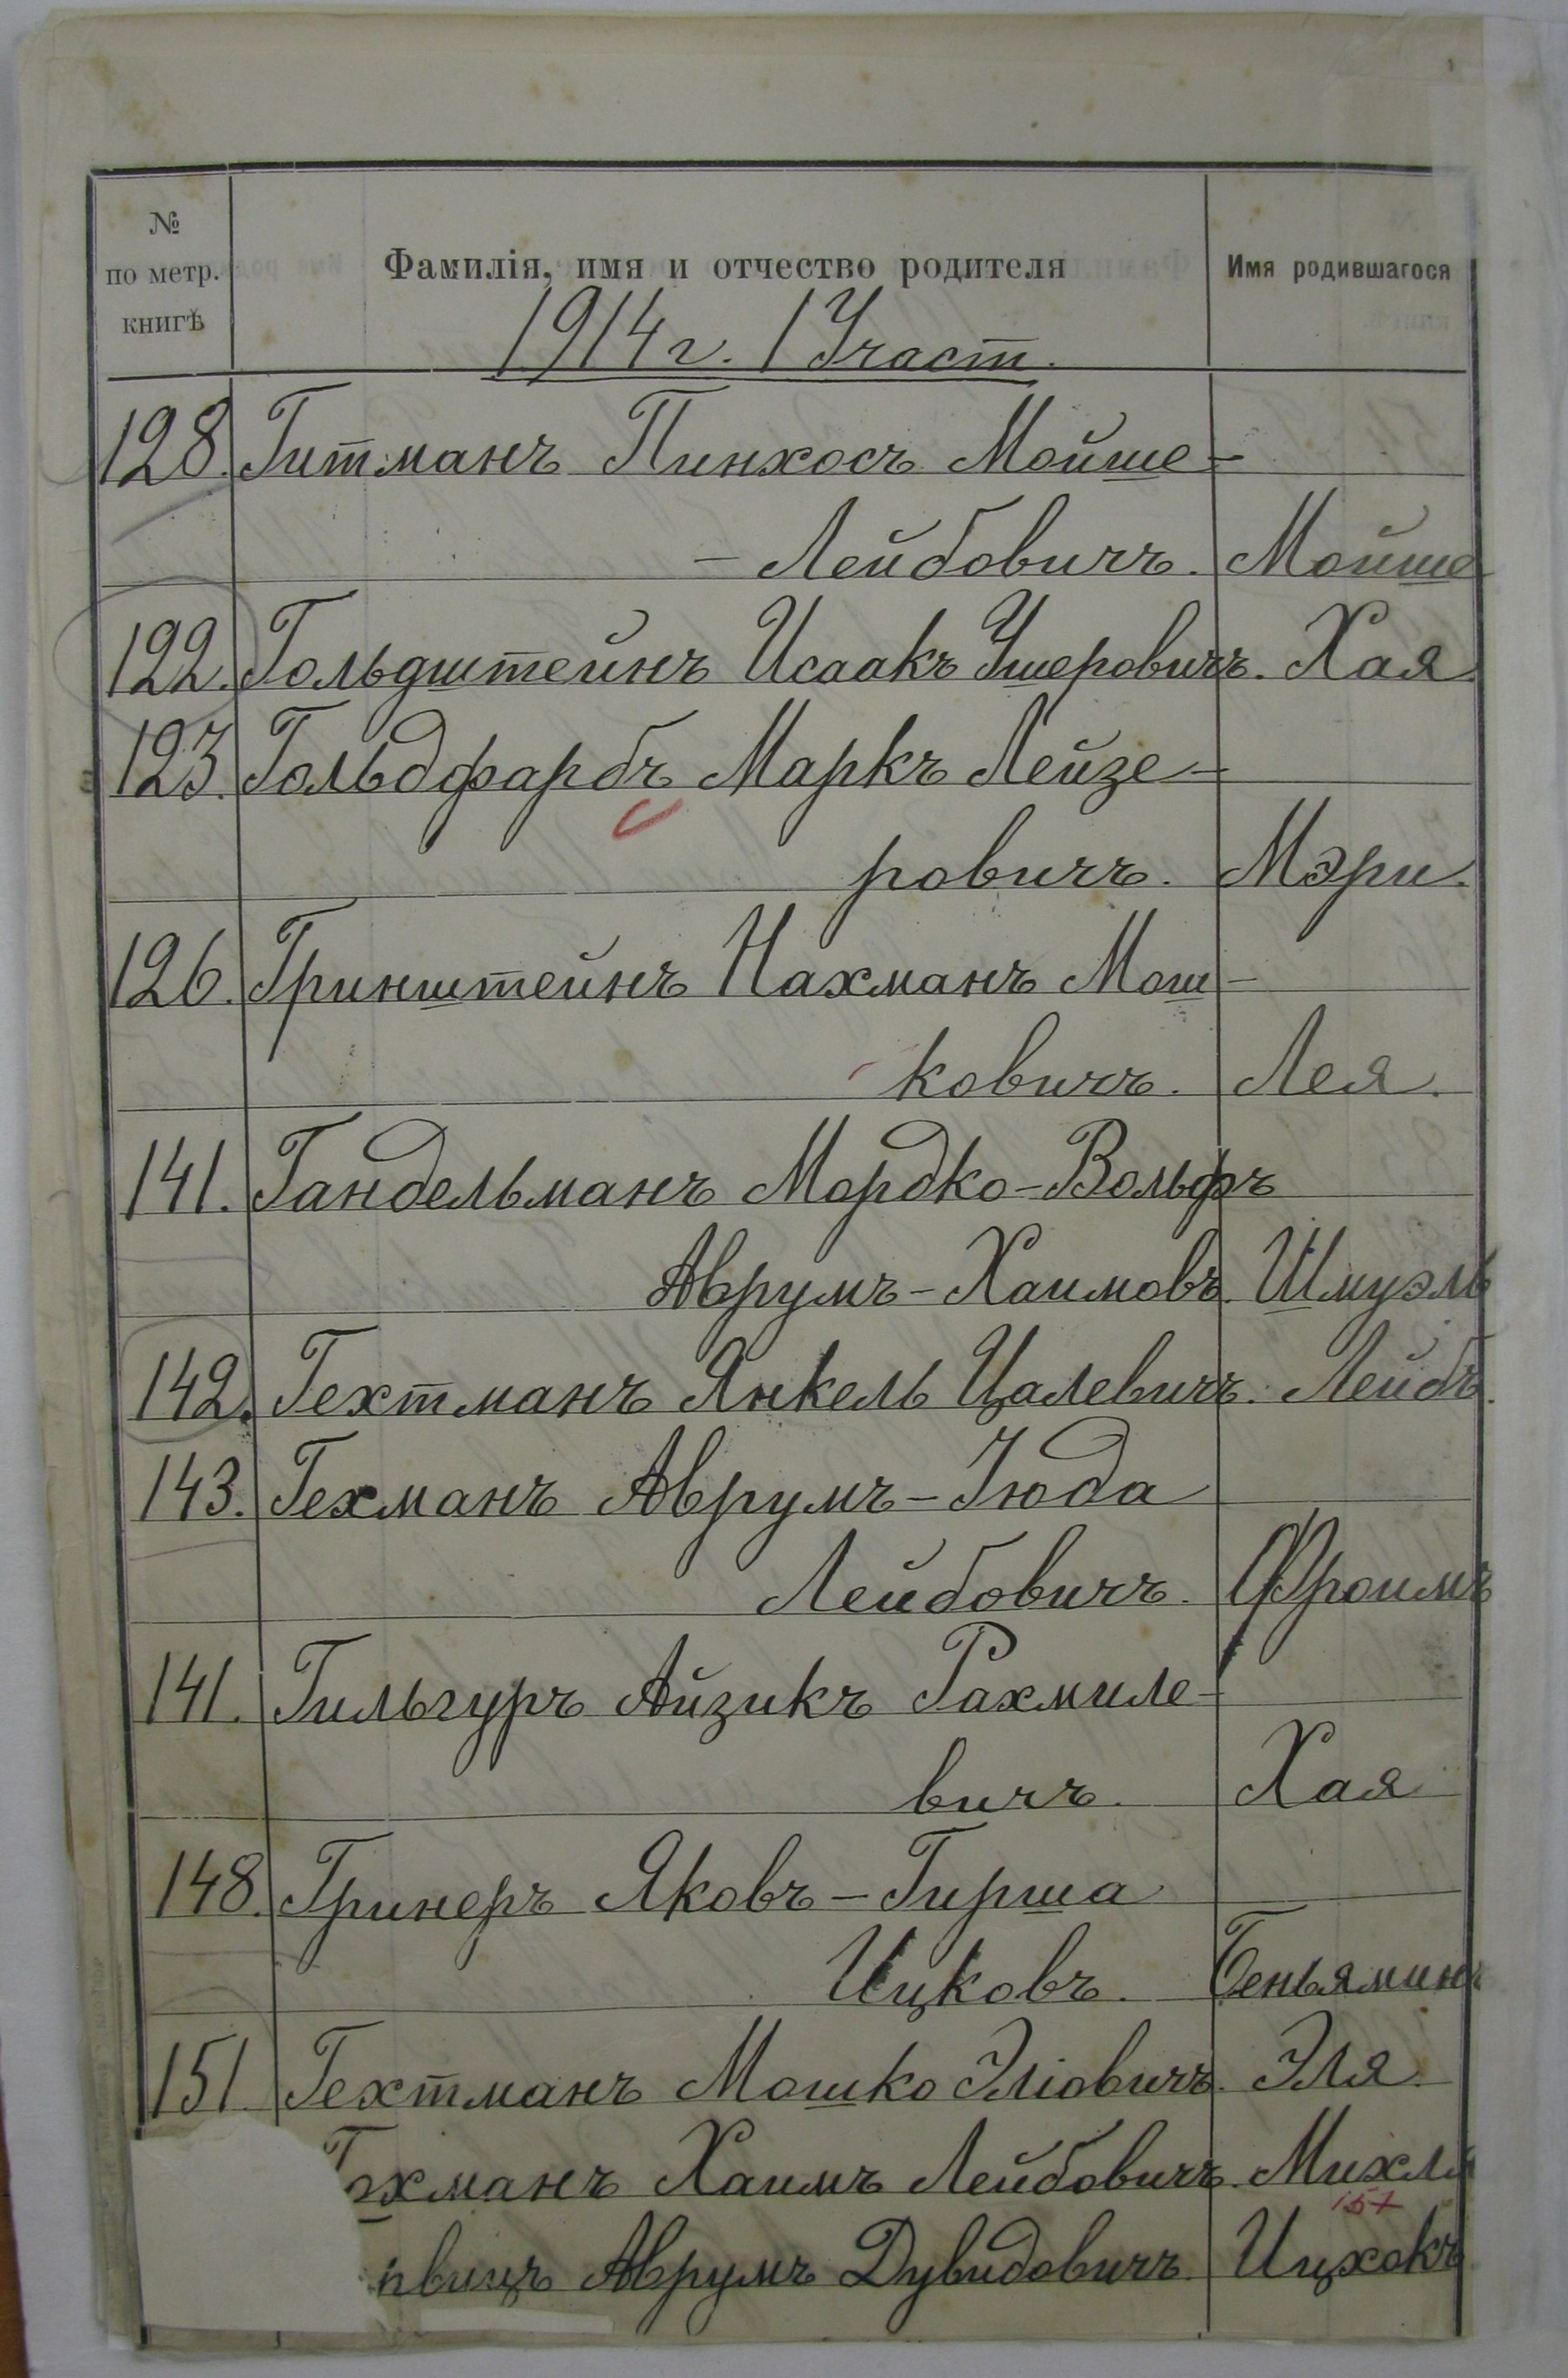 № по метр. книгѣ Фамилія, имя и отчество родителя Имя родившагося
1914 г. 1 Участ.
128. Гитманъ Пинхосъ Мойше-
- Лейбовичъ. Мойше
122. Гольдштейнъ Исаакъ Ушеровичъ. Хая
123. Гольдфарбъ Маркъ Лейзе-
ровичъ. Мэри.
126. Гринштейнъ Нахманъ Мош-
ковичъ. Лея.
141. Гандельманъ Мордко-Вольфъ
Аврумъ-Хаимовъ. Шмуэль
142. Гехтманъ Янкель Цалевичъ. Лейбъ.
143. Гехманъ Аврумъ-Іюда
Лейбовичъ. Фроимъ
141. Гильгуръ Айзикъ Рахмиле-
вичъ. Хая
148. Гринеръ Яковъ-Гирша
Ицковъ. Беньяминъ
151 Гехтманъ Мошко Эліовичъ. Эля.
хманъ Хаимъ Лейбовичъ. Михля
вицъ Аврумъ Дувидовичъ. Ицхокъ